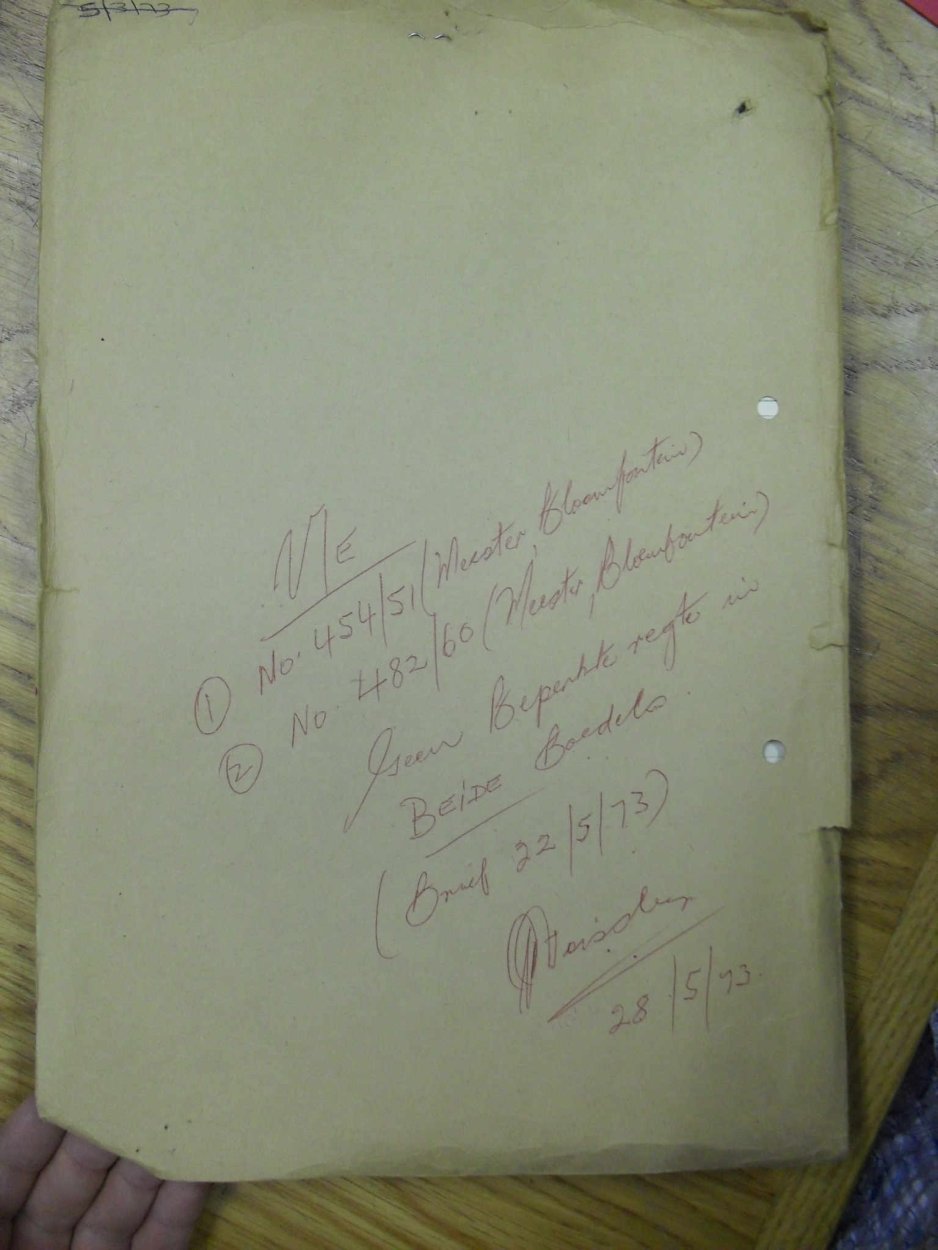 5/3/73
No. 454/51 (Meester, Bloemfontein)
② No. 482/60 (Meester, Bloemfontein)
①
Geen Beperkte regte in
BEIDE Boedels.
(Brief 22/5/73)
28/5/73.